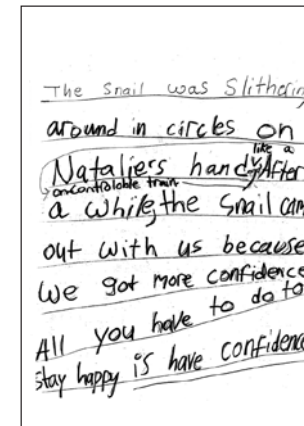 The Snail was Slithering
around in circles on
Natalie's hand like a
oncontrolable train. After
a while, the Snail cam
out with us because
we got more confidence
All you have to do to
stay happy is have confidence